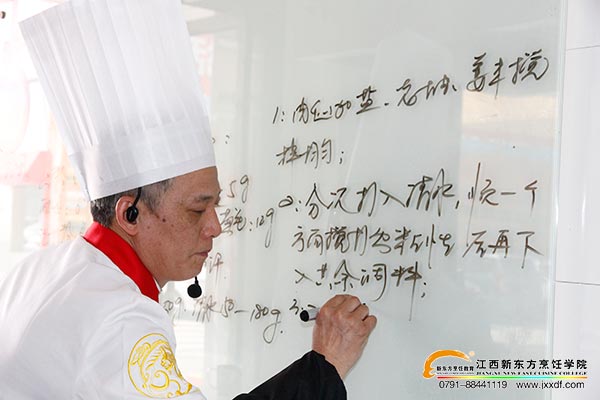 1：肉加盐、老抽、姜末搅
拌均匀；
②：分次加入清水，顺一个
方向搅打 后再下
入其余调料；
5g
12g
50-180g
新东方烹饪教育
江西新东方烹饪学院
JIANGXI NEW EAST CUISINE COLLEGE
0791-88441119 www.jxxdf.com